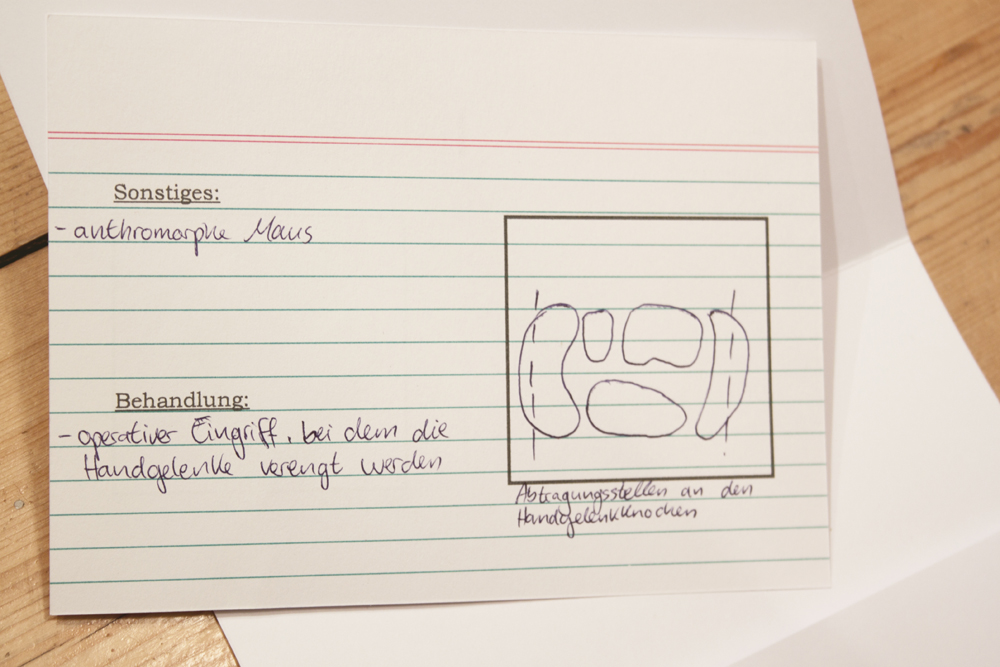 Sonstiges:
- anthromorphe Maus
Behandlung:
- operativer Eingriff, bei dem die
Handgelenke verengt werden
Abtragungsstellen an den
Handgelenkknochen